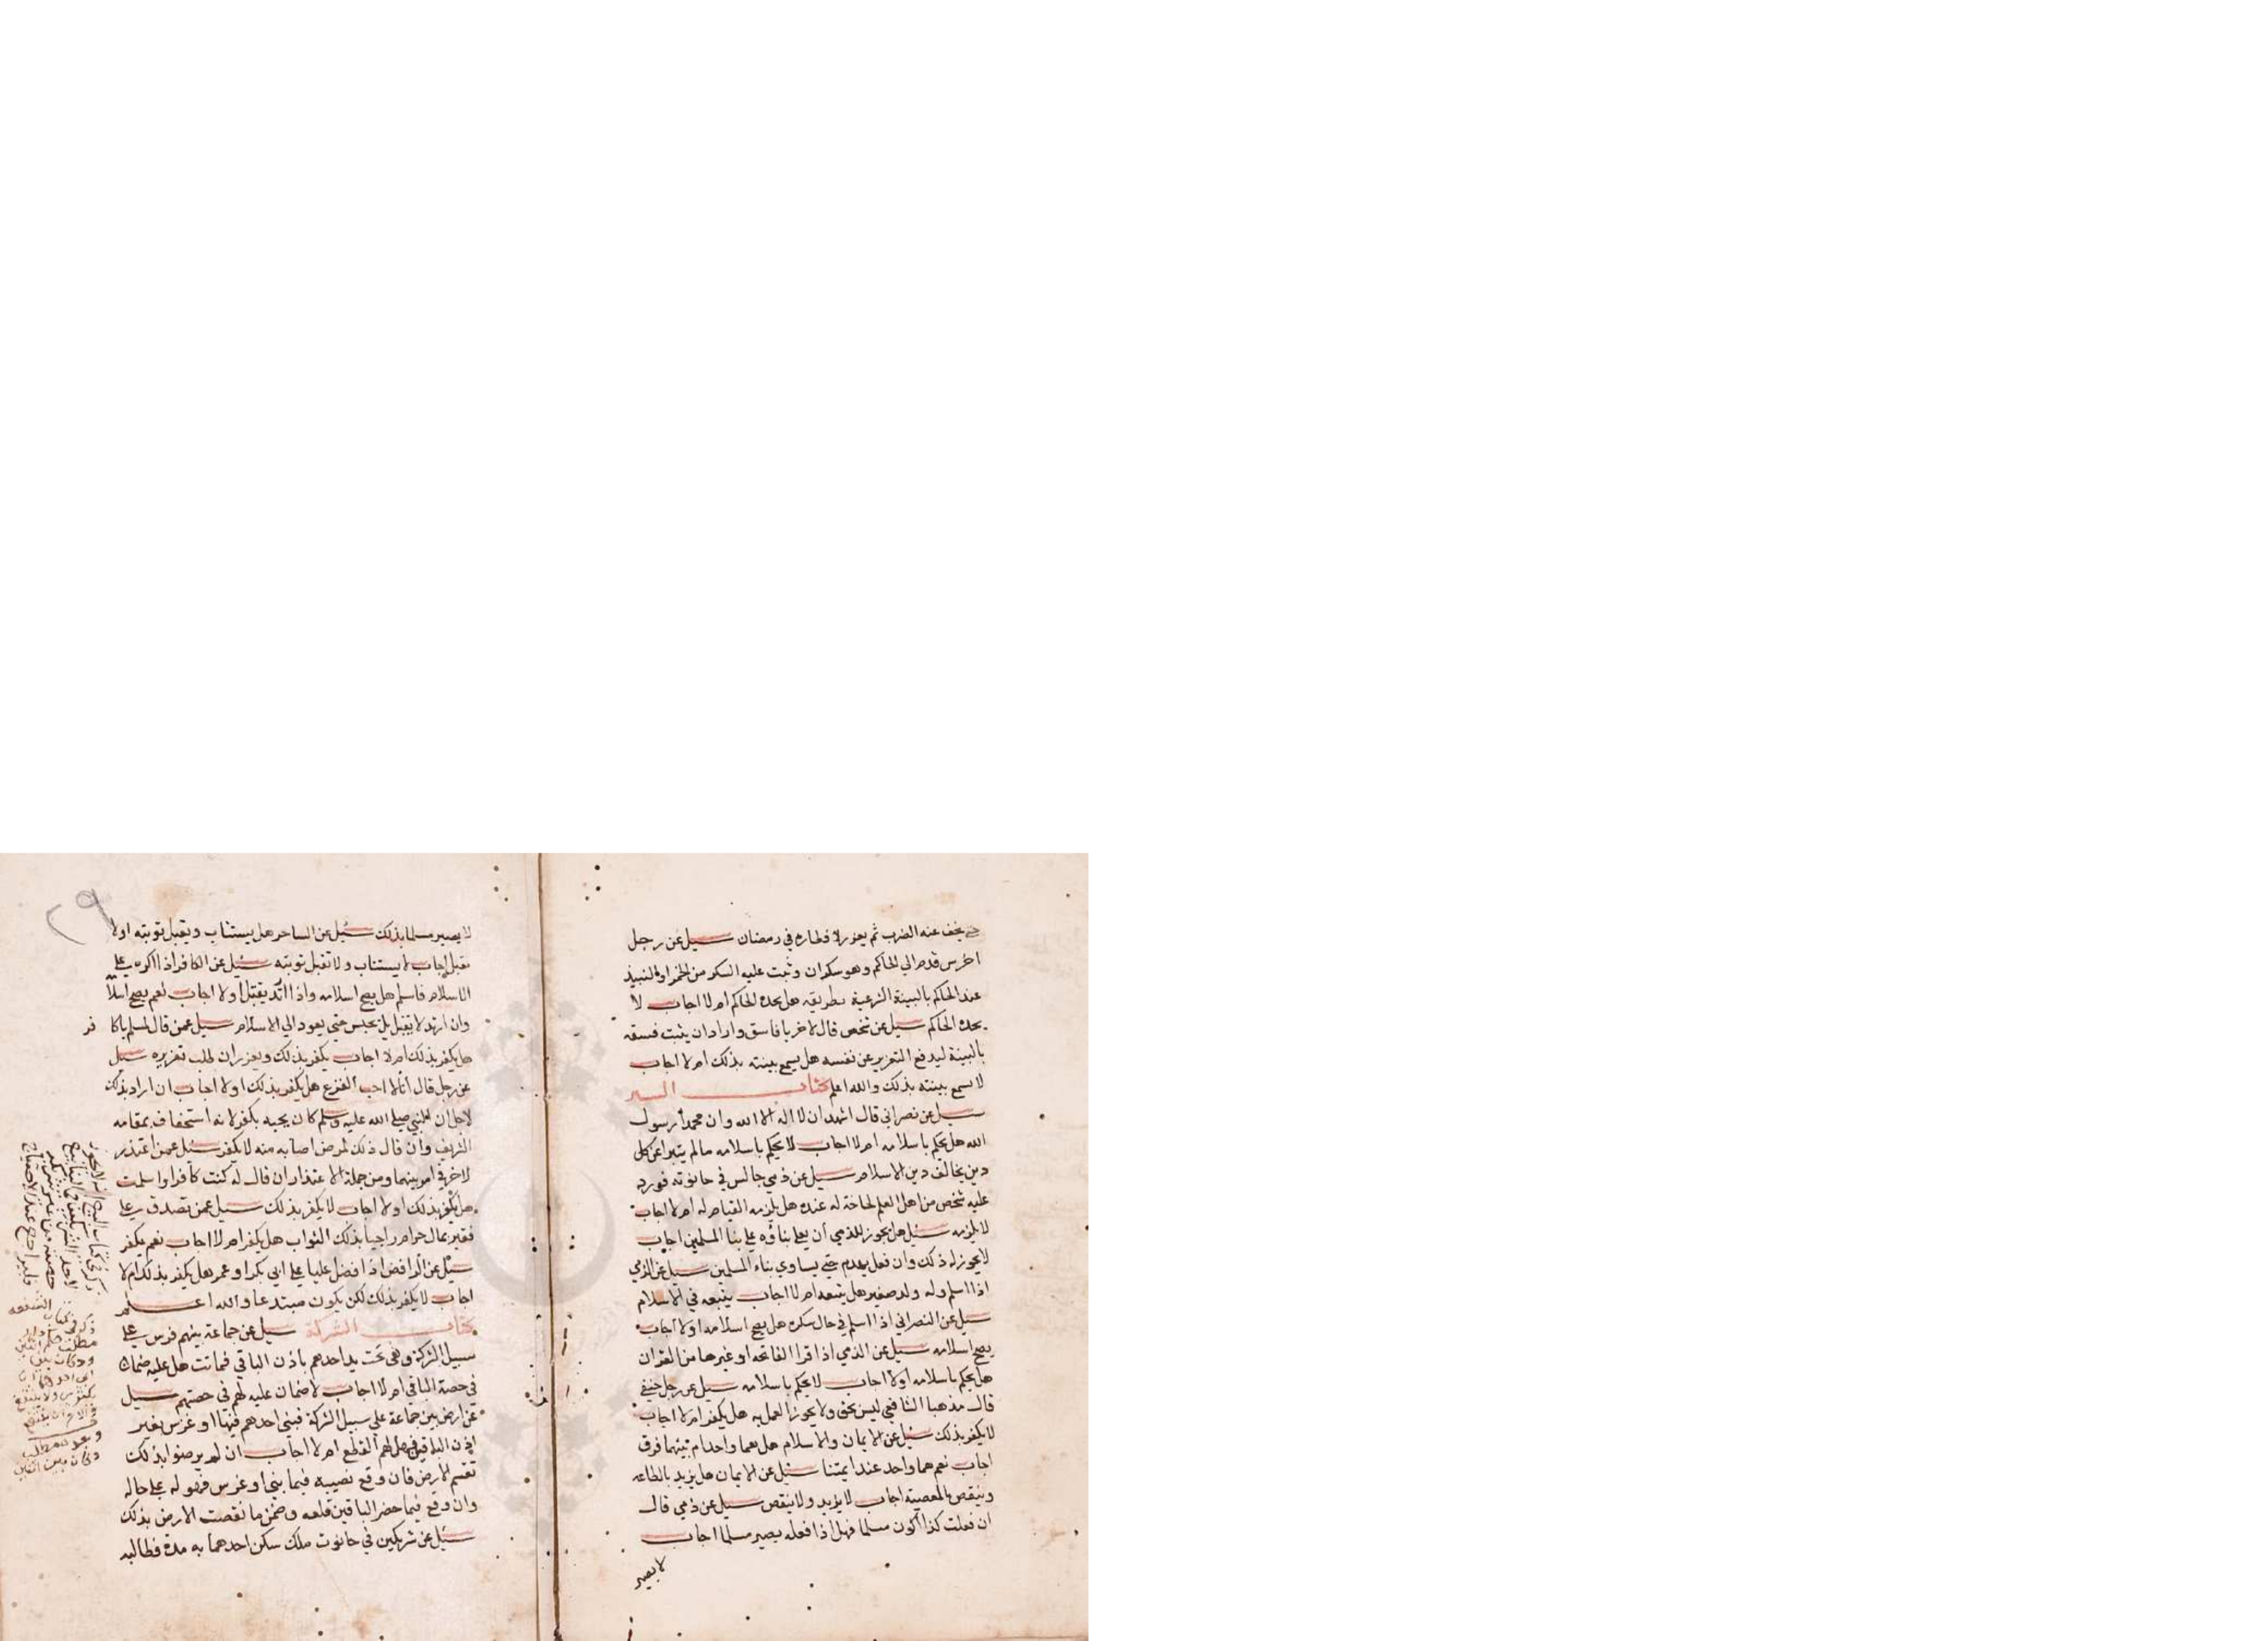 حتي يخف عنه الضرب ثم يعزر لافطاره في رمضان سيل عن رجل
اخرس قدم الي الحاكم وهو سكران وثبت عليه السكر من الخمر او النبيذ
عند الحاكم بالبينة الشرعية بطريقه هل يحده الحاكم ام لا اجاب لا
يحده الحاكم سيل عن شخص قال لاخر يا فاسق واراد ان يثبت فسقه
بالبينة ليدفع التعزير عن نفسه هل يسمع بينته بذلك ام لا اجاب
لا تسمع بينته بذلك والله اعلم كتاب السير
سيل عن نصراني قال اشهد ان لا اله الا الله وان محمدا رسول
الله هل يحكم باسلامه ام لا اجاب لا يحكم باسلامه مالم يتبرا عن كل
دين يخالف دين الاسلام سيل عن ذمي جالس في حانوته فورد
عليه شخص من اهل العلم لحاجة له عنده هل يلزمه القيام له ام لا اجاب
لا يلزمه سئيل هل يجوز للذمي أن يعلي بناؤه علي بنا المسلمين اجاب
لا يجوز له ذلك وان فعل يهدم حتي يساوي بناء المسلمين سيل عن الذمي
اذا اسلم وله ولد صغير هل يتبعه ام لا اجاب يتبعه في الاسلام
سيل عن النصراني اذا اسلم في حال سكره هل يصح اسلامه اولا اجاب
يصح اسلامه سيل عن الذمي اذا قرا الفاتحه او غيرها من القران
هل يحكم باسلامه اولا اجاب لا يحكم باسلامه سيل عن رجل حنفي
قال مذهب الشافعي ليس بحق ولا يجوز العمل به هل يكفر ام لا اجاب
لا يكفر بذلك سئيل عن الايمان والاسلام هل هما واحد ام بينهما فرق
اجاب نعم هما واحد عند ايمتنا سئيل عن الايمان هل يزيد بالطاعه
وينقص بالمعصية اجاب لا يزيد ولا ينقص سيل عن ذمي قال
ان فعلت كذا اكون مسلما فهل اذا فعله يصير مسلما اجاب
لا يصير
٢٩
لا يصير مسلما بذلك سئيل عن الساحر هل يستتاب وتقبل توبته اولا
تقبل اجاب لا يستتاب ولا تقبل توبته سئيل عن الكافر اذا اكره علي
الاسلام فاسلم هل يصح اسلامه واذا ارتد يقتل أولا اجاب نعم يصح اسلامه
وان ارتد لا يقتل بل يحبس حتي يعود الي الاسلام سيل عمن قال لمسلم يا كا فر
هل يكفر بذلك ام لا اجاب يكفر بذلك ويعزر ان طلب تعزيره سيل
عن رجل قال أنا لا احب القرع هل يكفر بذلك اولا اجاب ان اراد بذلك
لاجل ان النبي صلي الله عليه وسلم كان يحبه يكفر لانه استخفاف بمقامه
الشريف وان قال ذلك لمرض اصابه منه لا يكفر سئيل عمن اعتذر
لاخر في امر بينهما ومن جملة الاعتذار ان قال له كنت كافرا واسلمت
هل يكفر بذلك اولا اجاب لا يكفر بذلك سيل عمن تصدق علي
فقير بمال حرام راجيا بذلك الثواب هل يكفر ام لا اجاب نعم يكفر
سيل عن الرافض اذا فضل عليا علي ابي بكر او عمر هل يكفر بذلك ام لا
اجاب لا يكفر بذلك لكن يكون مبتدعا والله اعلم
كتاب الشركة سيل عن جماعة بينهم فرس علي
سبيل الشركة وهي تحت يد احدهم باذن الباقي فماتت هل عليه ضمان
في حصة الباقي ام لا اجاب لا ضمان عليه لهم في حصتهم سيل
عن ارض بين جماعة علي سبيل الشركة فبني احدهم فيها او غرس بغير
اذن الباقين فهل لهم القطع ام لا اجاب ان لم يرضوا بذلك
تقسم الارض فان وقع نصيبه فيما بني او غرس فهو له علي حاله
وان وقع فيما حضر الباقين قلعه وضمن ما نقصت الارض بذلك
سئيل عن شريكين في حانوت ملك سكن احدهما به مدة فطالبه